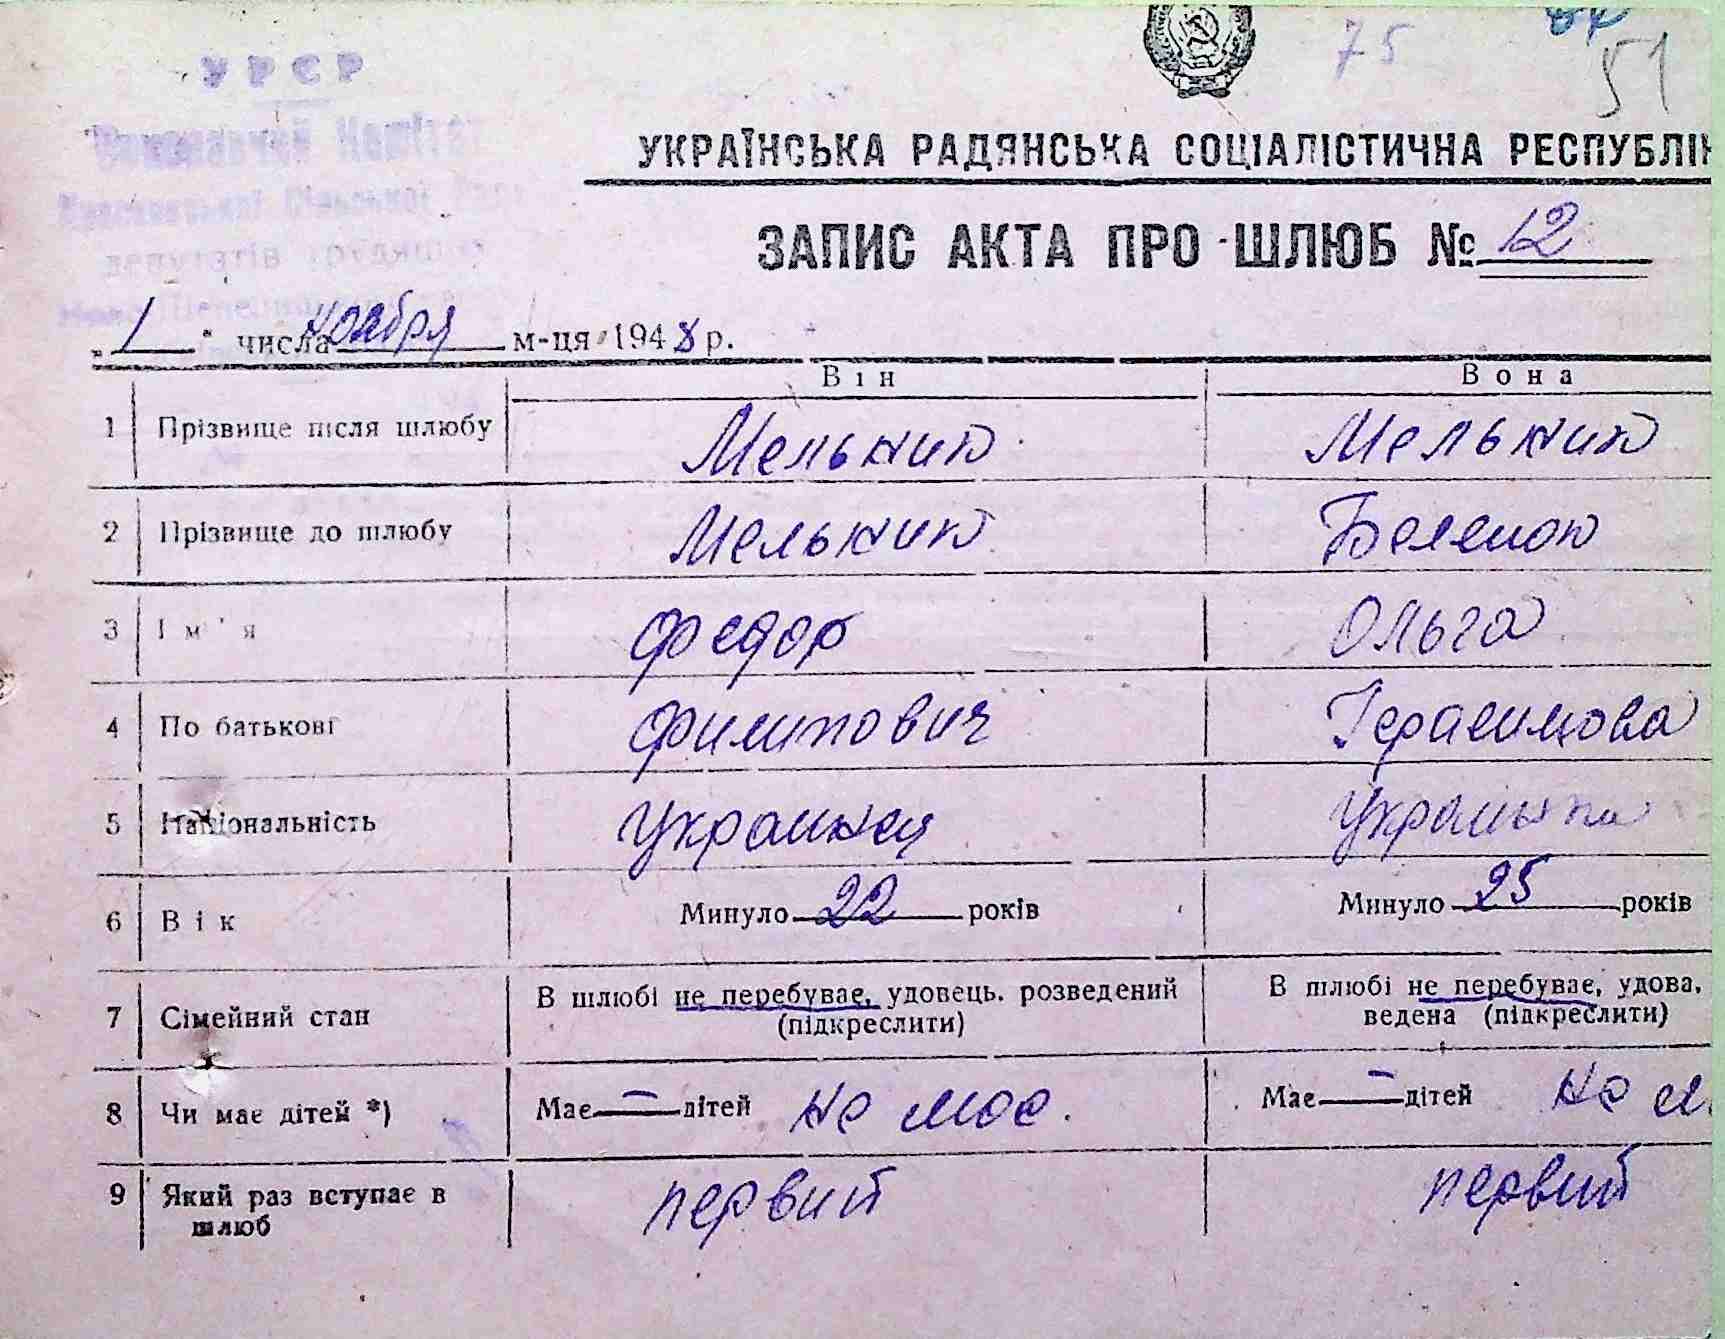 75
51
УРСР
Виконавчий Комітет
Сільської
депутатів трудящих
УКРАЇНСЬКА РАДЯНСЬКА СОЦІАЛІСТИЧНА РЕСПУБЛІК
ЗАПИС АКТА ПРО ШЛЮБ № 12
„1" числа ноября м-ця 1948 р.
Він Вона
1 Прізвище після шлюбу Мельник Мельник
2 Прізвище до шлюбу Мельник
3 Ім'я Федор Ольга
4 По батькові Филипович Герасимова
5 Національність Украинец Украинка
6 Вік Минуло 22 років Минуло 25 років
7 Сімейний стан В шлюбі не перебуває, удовець, розведений В шлюбі не перебуває, удова,
(підкреслити) ведена (підкреслити)
8 Чи має дітей *) Має — дітей не має. Має — дітей не м
9 Який раз вступає в первий первий
шлюб